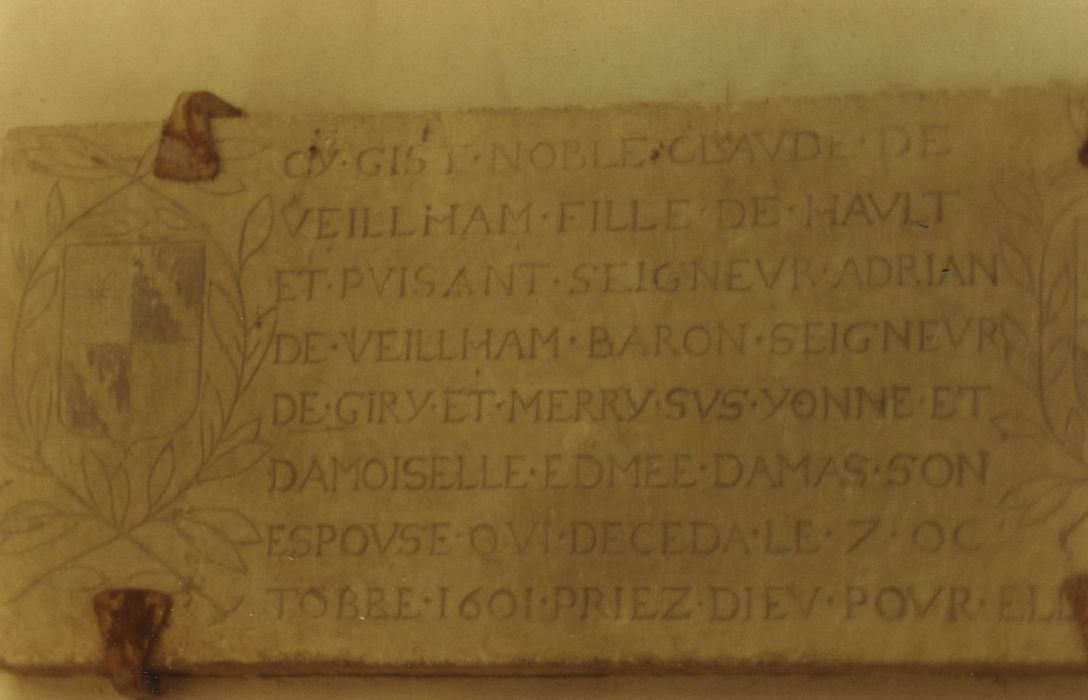 CY·GIST·NOBLE·CLAVDE·DE
VEILLHAM·FILLE·DE·HAVLT
ET·PVISANT·SEIGNEVR·ADRIAN
DE·VEILLHAM·BARON·SEIGNEVR
DE·GIRY·ET·MERRY·SVS·YONNE·ET
DAMOISELLE·EDMEE·DAMAS·SON
ESPOVSE·QVI·DECEDA·LE·7·OC
TOBRE·1601·PRIEZ·DIEV·POVR·ELL